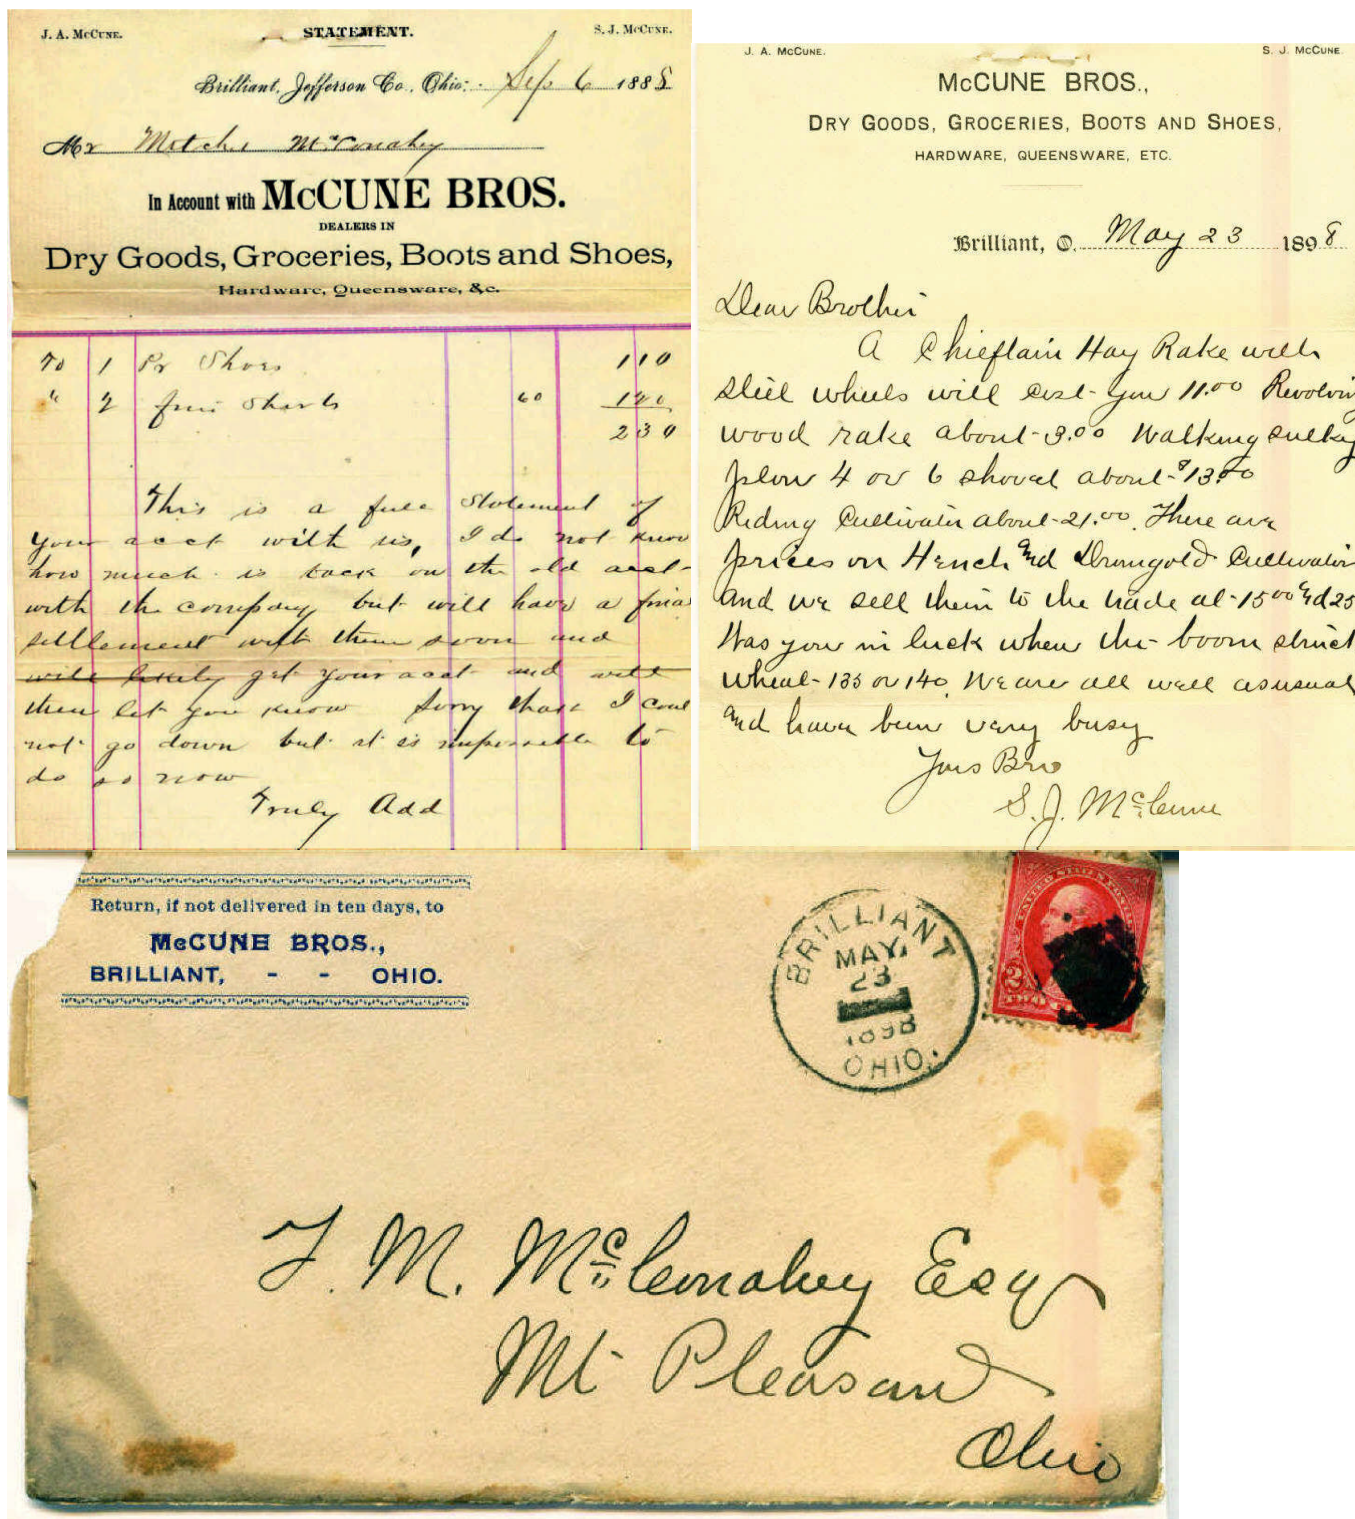 J. A. McCUNE.
STATEMENT.
S. J. McCUNE.
Brilliant, Jefferson Co., Ohio: Sep 6 1888
Mr McConahey
In Account with McCUNE BROS.
DEALERS IN
Dry Goods, Groceries, Boots and Shoes,
Hardware, Queensware, &c.
To 1 Pr Shoes 110
" 2 Shirts 60 120
230
This is a full Statement of
your acct with us, I do not know
how much is back on the old acct
with the company but will have a final
settlement with them soon and
will likely get your acct and will
then let you know Sorry that I could
not go down but it is impossible to
do so now
Truly Add
J. A. McCUNE.
S. J. McCUNE
McCUNE BROS.,
DRY GOODS, GROCERIES, BOOTS AND SHOES,
HARDWARE, QUEENSWARE, ETC.
Brilliant, O. May 23 1898
Dear Brother
A Chieftain Hay Rake with
steel wheels will cost you 11.00 Revolving
wood rake about 3.00 Walking sulky
plow 4 or 6 shovel about $13.00
Riding Cultivator about 21.00. These are
prices on Hench and Dromgold Cultivator
and we sell them to the trade at 15 00 and 25
Was you in luck when the boom struck
wheat 135 or 140. We are all well as usual
and have been very busy
Yours Bro
S. J. McCune
Return, if not delivered in ten days, to
McCUNE BROS.,
BRILLIANT, - - OHIO.
BRILLIANT
MAY.
23
1898
OHIO.
UNITED STATES POSTAGE
2
T. M. McConahey Esq
Mt Pleasant
Ohio